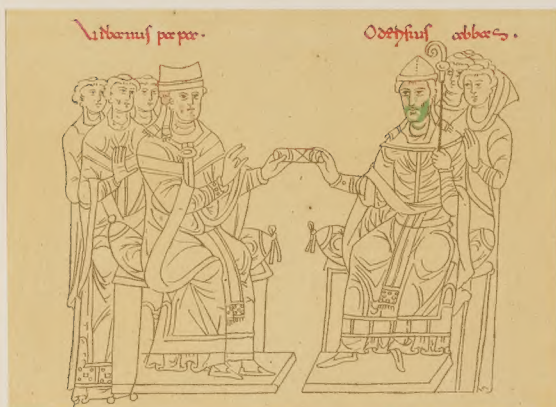 Urbanus papa.
Oderisius abbas.